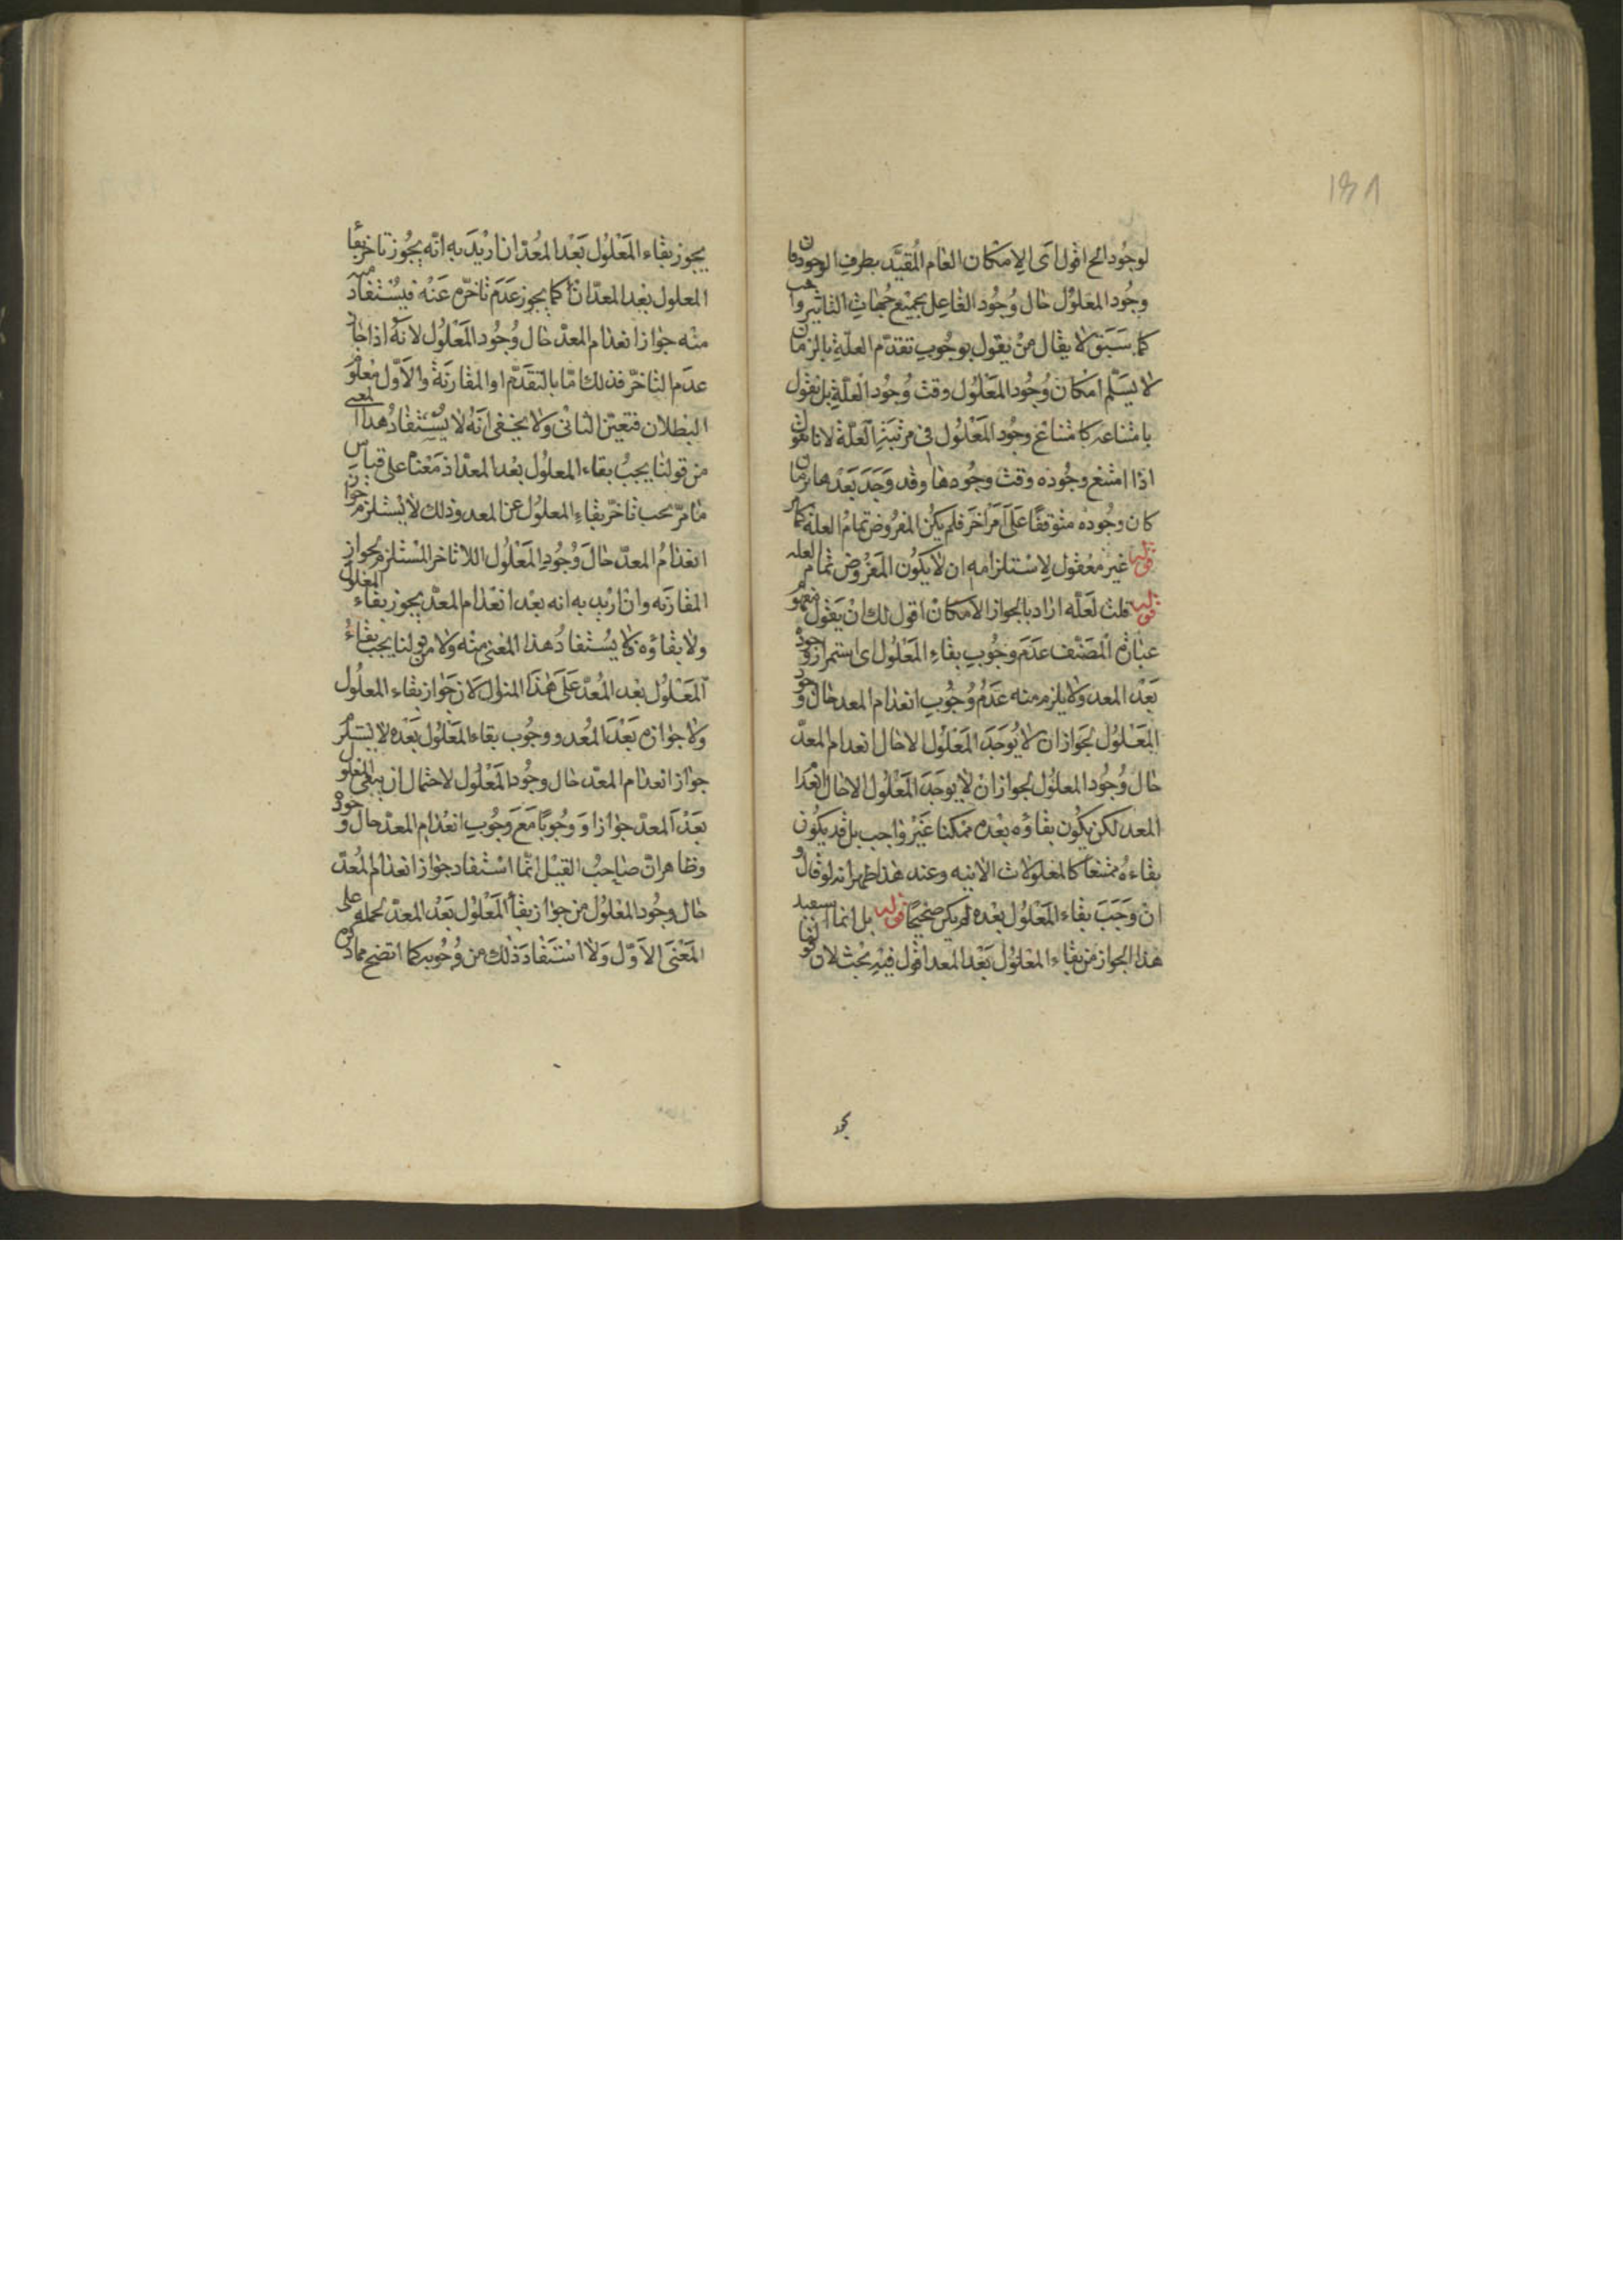 ١٣١
لوجود الخ اقول اى الامكان العام المقيد بطرف الوجود فان
وجود المعلول حال وجود الفاعل بجميع جهات التاثير واجب
كما سبق لا يقال من يقول بوجوب تقدم العلة بالزمان
لا يسلم امكان وجود المعلول وقت وجود العلة بل يقول
بامتناعه كامتناع وجود المعلول فى مرتبة العلة لانا نقول
اذا امتنع وجوده وقت وجودها وقد وجد بعدها بزمان
كان وجوده متوقفا على امر اخر فلم يكن المفروض تمام العلة كما مر
قوله غير معقول لاستلزامه ان لا يكون المفروض تمام العله
قوله قلت لعله اراد بالجواز الامكان اقول لك ان يقول مفهوم
عبارة المصنف عدم وجوب بقاء المعلول اى استمرار وجوده
بعد المعد ولا يلزم منه عدم وجوب انعدام المعد حال وجود
المعلول لجواز ان لا يوجد المعلول الا حال انعدام المعد
حال وجود المعلول لجواز ان لا يوجد المعلول الا حال انعدام
المعد لكن يكون بقاؤه بعده ممكنا غير واجب بل قد يكون
بقاءه ممتنعا كالمعلولات الانيه وعند هذا ظهر انه لو قال
ان وجب بقاء المعلول بعده لم يكن صحيحا قوله بل انما استفيد
هذا الجواز من بقاء المعلول بعد المعد اقول فيه بحث لان قولنا
يجوز
يجوز بقاء المعلول بعد المعد ان اريد به انه يجوز تاخر بقاء
المعلول بعد المعد ان كما يجوز عدم تاخره عنه فيستفاد منه
منه جواز انعدام المعد حال وجود المعلول لانه اذا جاز
عدم التاخر فذلك اما بالتقدم او المقارنة والاول معلوم
البطلان فتعين الثانى ولا يخفى انه لا يستفاد هذا المعنى
من قولنا يجب بقاء المعلول بعد المعد اذ معناه على قياس
ما مر يجب تاخر بقاء المعلول عن المعد وذلك لا يستلزم جواز
انعدام المعد حال وجود المعلول اللا تاخر المستلزم لجواز
المقارنه وان اريد به انه بعد انعدام المعد يجوز بقاء المعلول
ولا بقاؤه فلا يستفاد هذا المعنى منه ولا من قولنا يجب بقاء
المعلول بعد المعد على هذا المنوال لان جواز بقاء المعلول
ولا جوازه بعد المعد ووجوب بقاء المعلول بعده لا يستلزم
جواز انعدام المعد حال وجود المعلول لاحتمال ان يبقى المعلول
بعد المعد جوازا ووجوبا مع وجوب انعدام المعد حال وجوده
وظاهر ان صاحب القيل انما استفاد جواز انعدام المعد
حال وجود المعلول من جواز بقاء المعلول بعد المعد بحمله على
المعنى الاول ولا استفاد ذلك من وجوبه كما اتضح مما ذكره